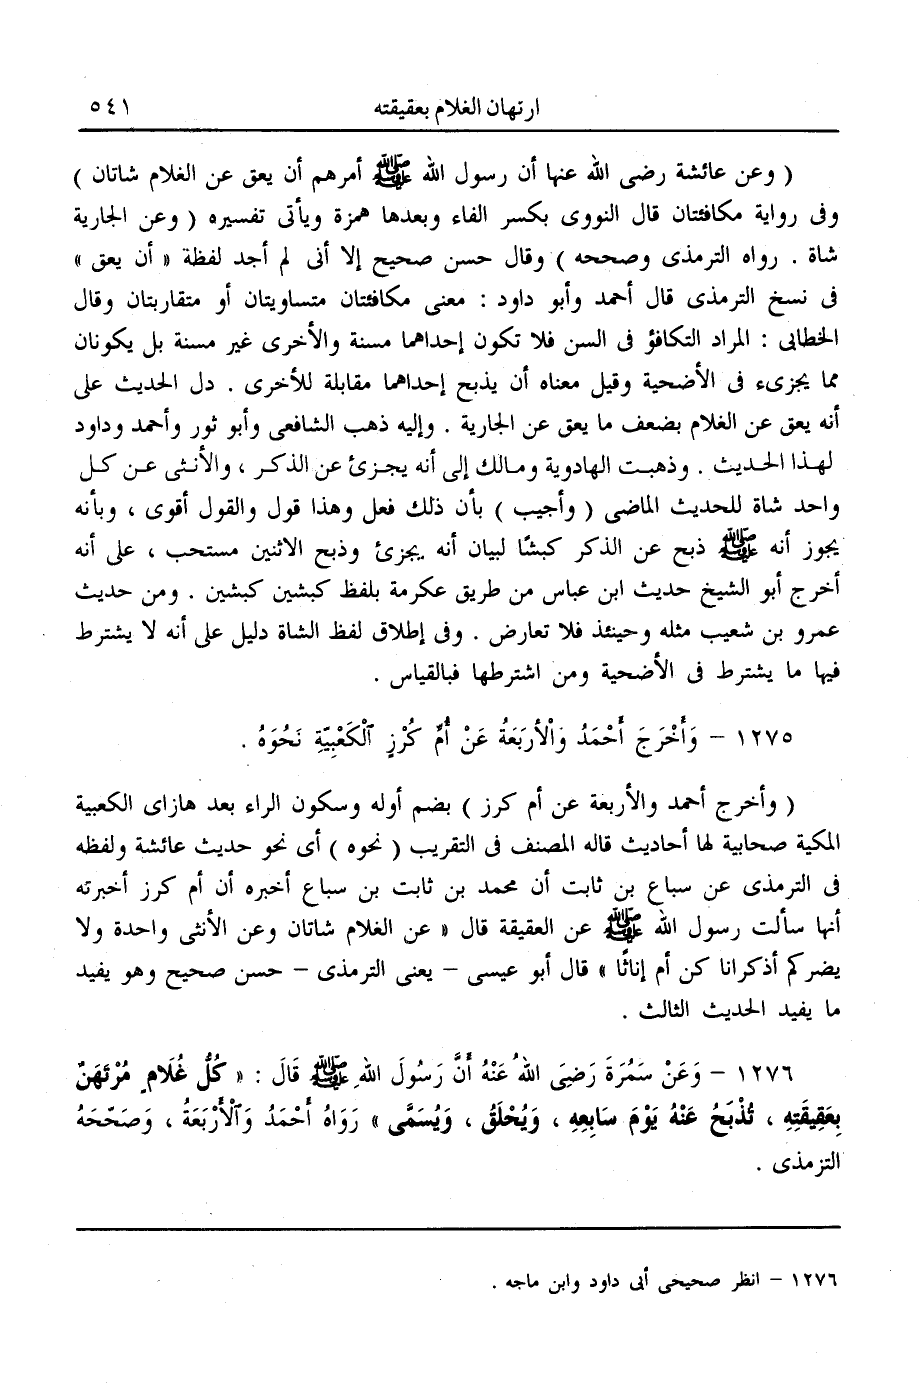 ارتهان الغلام بعقيقته ٥٤١
( وعن عائشة رضى الله عنها أن رسول الله ﷺ أمرهم أن يعق عن الغلام شاتان )
وفى رواية مكافئتان قال النووى بكسر الفاء وبعدها همزة ويأتى تفسيره ( وعن الجارية
شاة . رواه الترمذى وصححه ) وقال حسن صحيح إلا أنى لم أجد لفظة « أن يعق »
فى نسخ الترمذى قال أحمد وأبو داود : معنى مكافئتان متساويتان أو متقاربتان وقال
الخطابى : المراد التكافؤ فى السن فلا تكون إحداهما مسنة والأخرى غير مسنة بل يكونان
مما يجزىء فى الأضحية وقيل معناه أن يذبح إحداهما مقابلة للأخرى . دل الحديث على
أنه يعق عن الغلام بضعف ما يعق عن الجارية . وإليه ذهب الشافعى وأبو ثور وأحمد وداود
لهذا الحديث . وذهبت الهادوية ومالك إلى أنه يجزئ عن الذكر ، والأنثى عن كل
واحد شاة للحديث الماضى ( وأجيب ) بأن ذلك فعل وهذا قول والقول أقوى ، وبأنه
يجوز أنه ﷺ ذبح عن الذكر كبشًا لبيان أنه يجزئ وذبح الاثنين مستحب ، على أنه
أخرج أبو الشيخ حديث ابن عباس من طريق عكرمة بلفظ كبشين كبشين . ومن حديث
عمرو بن شعيب مثله وحينئذ فلا تعارض . وفى إطلاق لفظ الشاة دليل على أنه لا يشترط
فيها ما يشترط فى الأضحية ومن اشترطها فبالقياس .
١٢٧٥ – وَأَخْرَجَ أَحْمَدُ وَالْأَرْبَعَةُ عَنْ أُمِّ كُرْزٍ ٱلْكَعْبِيَّةِ نَحْوَهُ .
( وأخرج أحمد والأربعة عن أم كرز ) بضم أوله وسكون الراء بعد هازاى الكعبية
المكية صحابية لها أحاديث قاله المصنف فى التقريب ( نحوه ) أى نحو حديث عائشة ولفظه
فى الترمذى عن سباع بن ثابت أن محمد بن ثابت بن سباع أخبره أن أم كرز أخبرته
أنها سألت رسول الله ﷺ عن العقيقة قال « عن الغلام شاتان وعن الأنثى واحدة ولا
يضركم أذكرانا كن أم إناثًا » قال أبو عيسى – يعنى الترمذى – حسن صحيح وهو يفيد
ما يفيد الحديث الثالث .
١٢٧٦ – وَعَنْ سَمُرَةَ رَضِىَ اللهُ عَنْهُ أَنَّ رَسُولَ اللهِ ﷺ قَالَ : « كُلُّ غُلَامٍ مُرْتَهَنٌ
بِعَقِيقَتِهِ ، تُذْبَحُ عَنْهُ يَوْمَ سَابِعِهِ ، وَيُحْلَقُ ، وَيُسَمَّى » رَوَاهُ أَحْمَدُ وَٱلْأَرْبَعَةُ ، وَصَحَّحَهُ
الترمذى .
١٢٧٦ – انظر صحيحى أبى داود وابن ماجه .